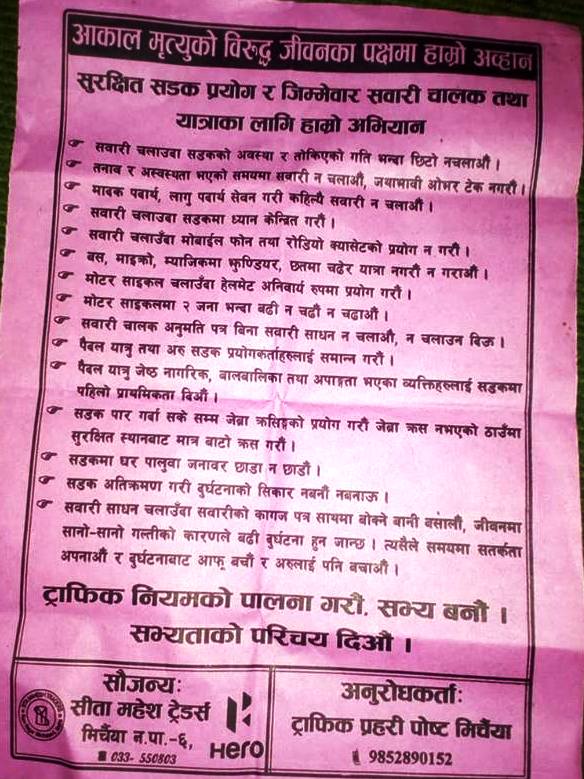 आकाल मृत्युको विरुद्ध जीवनका पक्षमा हाम्रो अव्हान
सुरक्षित सडक प्रयोग र जिम्मेवार सवारी चालक तथा
यात्राका लागि हाम्रो अभियान
सवारी चलाउदा सडकको अवस्था र तोकिएको गति भन्दा छिटो नचलाऔं ।
तनाव र अस्वस्थता भएको समयमा सवारी न चलाऔं, जथाभावी ओभर टेक नगरौं ।
मादक पदार्थ, लागु पदार्थ सेवन गरी कहिल्यै सवारी न चलाऔं ।
सवारी चलाउदा सडकमा ध्यान केन्द्रित गरौं ।
सवारी चलाउँदा मोबाईल फोन तथा रोडियो क्यासेटको प्रयोग न गरौं ।
बस, माइक्रो, म्याजिकमा झुण्डिएर, छतमा चढेर यात्रा नगरौं न गराऔं ।
मोटर साइकल चलाउँदा हेलमेट अनिवार्य रुपमा प्रयोग गरौं ।
मोटर साइकलमा २ जना भन्दा बढी न चढौं न चढाऔं ।
सवारी चालक अनुमति पत्र बिना सवारी साधन न चलाऔं, न चलाउन दिऊ ।
पैदल यात्रु तथा अरु सडक प्रयोगकर्ताहरुलाई समान्न गरौं ।
पैदल यात्रु जेष्ठ नागरिक, बालबालिका तथा अपाङ्गता भएका व्यक्तिहरुलाई सडकमा
पहिलो प्राथमिकता दिऔं ।
सडक पार गर्दा सके सम्म जेब्रा क्रसिङ्गको प्रयोग गरौं जेब्रा क्रस नभएको ठाउँमा
सुरक्षित स्थानबाट मात्र बाटो क्रस गरौं ।
सडकमा घर पालुवा जनावर छाडा न छाडौं ।
सडक अतिक्रमण गरी दुर्घटनाको सिकार नबनौं नबनाऊ ।
सवारी साधन चलाउँदा सवारीको कागज पत्र साथमा बोक्ने बानी बसालौं, जीवनमा
सानो-सानो गल्तीको कारणले बढी दुर्घटना हुन जान्छ । त्यसैले समयमा सतर्कता
अपनाऔं र दुर्घटनाबाट आफू बचौं र अरुलाई पनि बचाऔं ।
ट्राफिक नियमको पालना गरौं. सभ्य बनौं ।
सभ्यताको परिचय दिऔं ।
सौजन्यः
सीता महेश ट्रेडर्स
मिर्चैया न.पा.-६,
033- 550803
Hero
अनुरोधकर्ताः
ट्राफिक प्रहरी पोष्ट मिर्चैया
9852890152